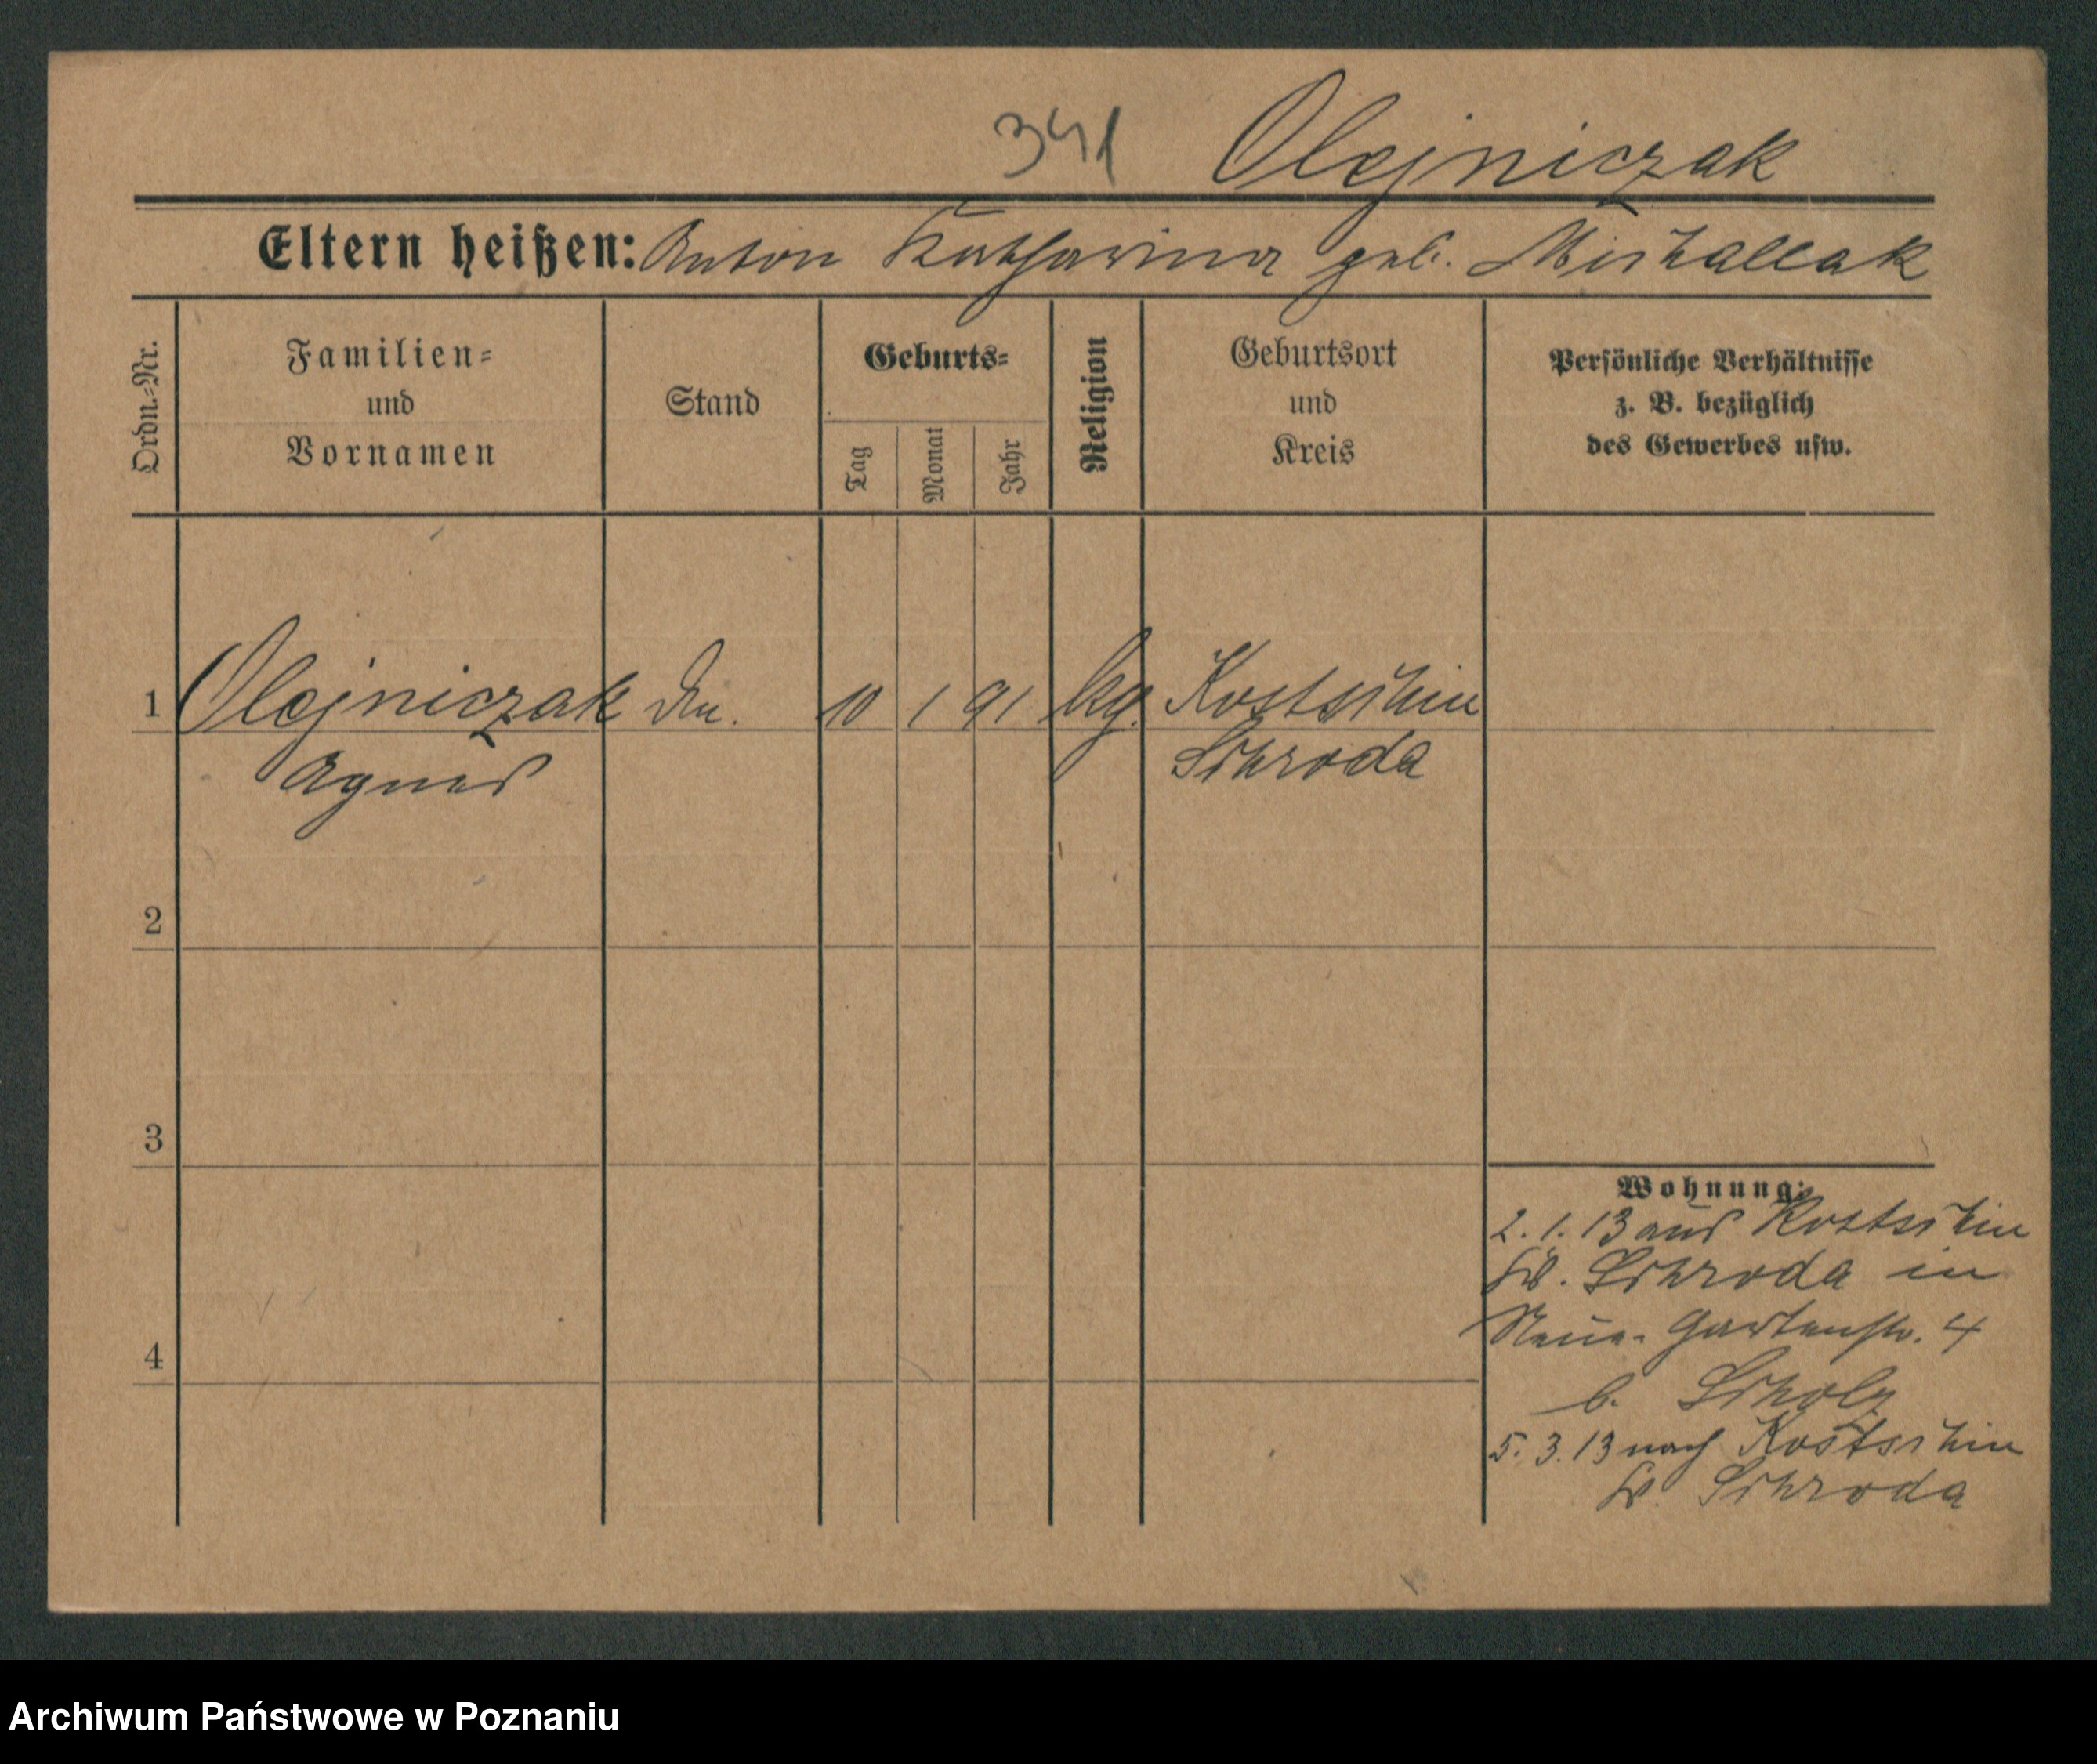 341 Olejniczak
Eltern heißen: Anton Katharina geb. Michallak
Ordn.-Nr.
Familien-
und
Vornamen
Stand
Geburts-
Tag
Monat
Jahr
Religion
Geburtsort
und
Kreis
Persönliche Verhältnisse
z. B. bezüglich
des Gewerbes usw.
1 Olejniczak 10 1 91 kg. Kostschin
Agnes Schroda
2
3
4
Wohnung:
2.1.13 aus Kostschin
Schroda in
Neue Gartenstr. 4
b. Scholz
5.3.13 nach Kostschin
Schroda
Archiwum Państwowe w Poznaniu